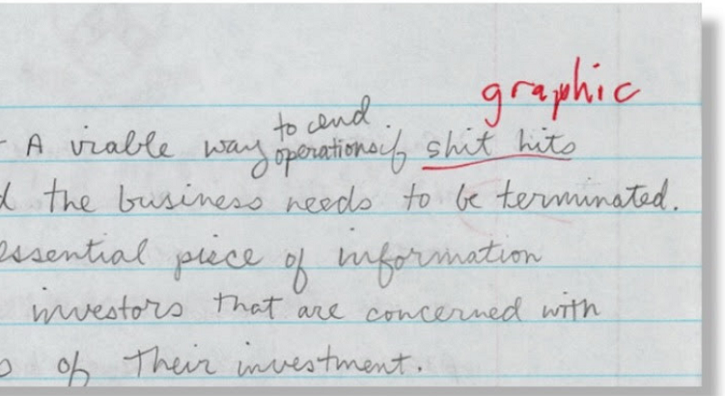 graphic
to end
A viable way operations if shit hits
the business needs to be terminated.
essential piece of information
investors that are concerned with
of their investment.